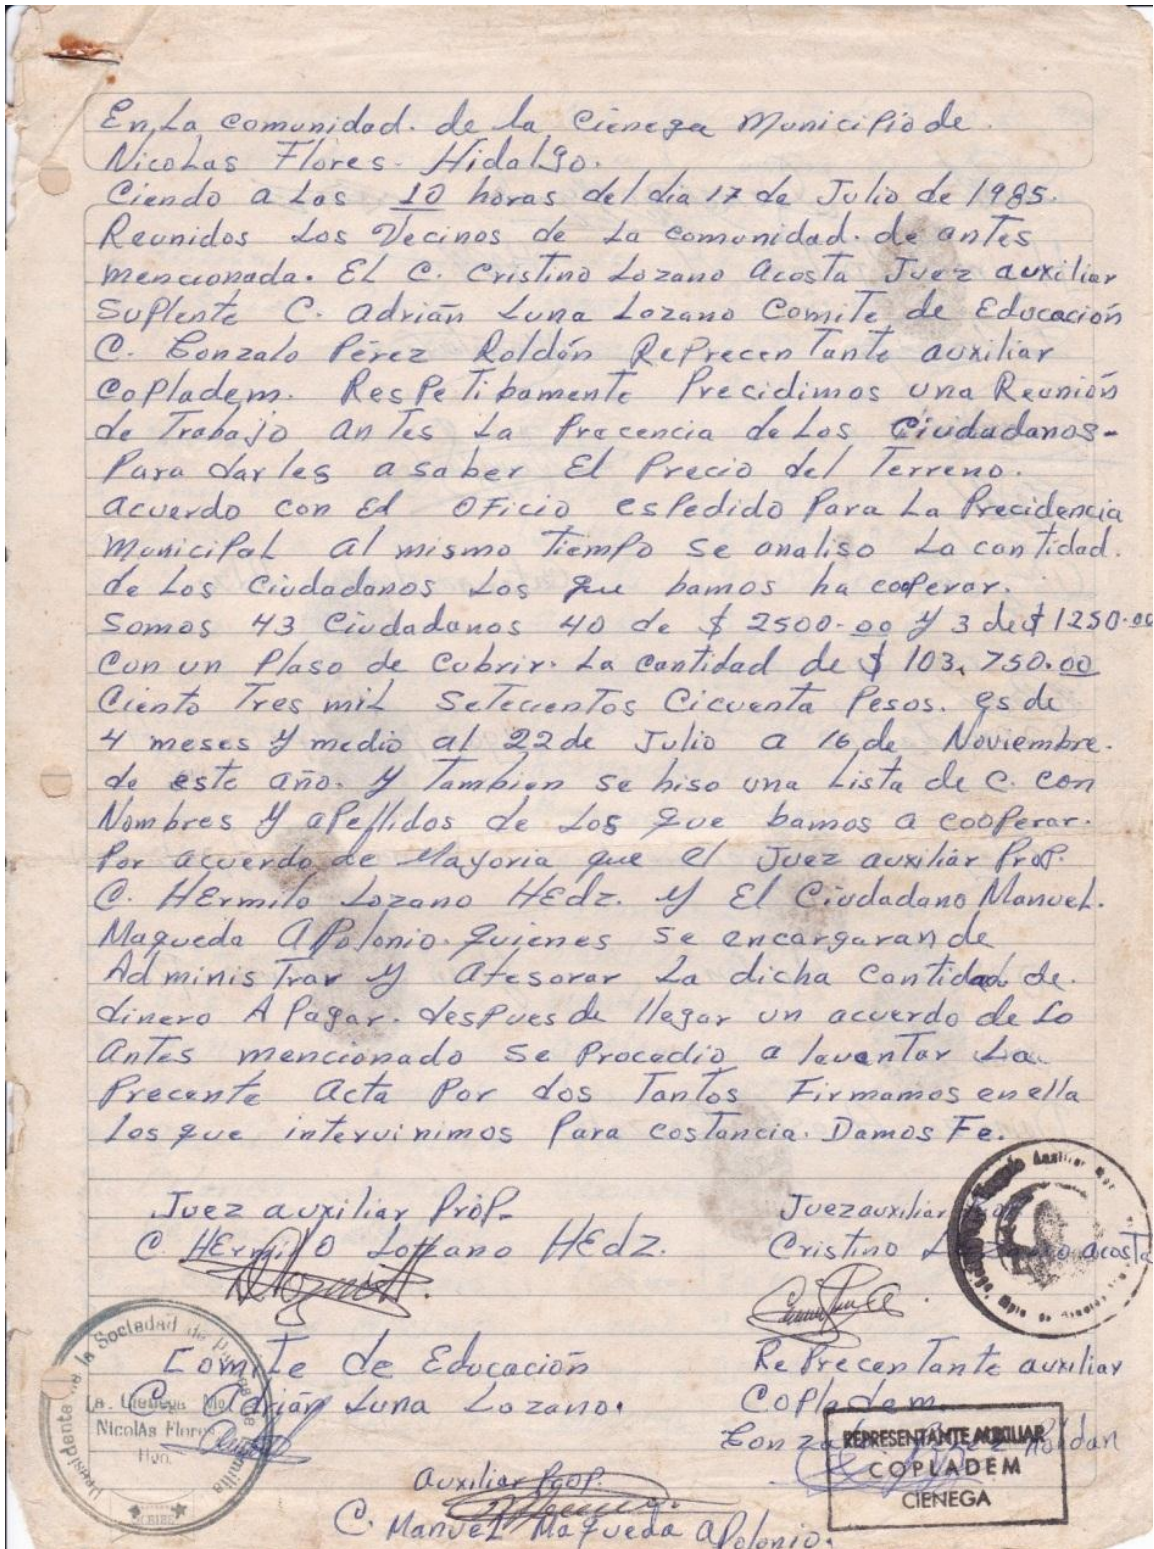 En La comunidad. de la Cienega Municipio de.
Nicolas Flores- Hidalgo.
Ciendo a Las 10 horas del dia 17 de Julio de 1985.
Reunidos Los Vecinos de La comunidad. de antes
mencionada. El C. Cristino Lozano Acosta Juez auxiliar
Suplente C. Adrián Luna Lozano Comite de Educación
C. Gonzalo Pérez Roldán Reprecentante auxiliar
Copladem. Respetibamente Precidimos una Reunión
de Trabajo antes La Precencia de Los Ciudadanos-
Para darles a saber El Precio del Terreno.
acuerdo con El Oficio espedido Para La Precidencia
Municipal al mismo Tiempo se analiso La cantidad.
de Los Ciudadanos Los que bamos ha cooperar.
Somos 43 Ciudadanos 40 de $ 2500.00 y 3 de $ 1250.00
Con un Plaso de Cubrir. La Cantidad de $ 103,750.00
Ciento Tres mil Setecientos Cicuenta Pesos. es de
4 meses y medio al 22 de Julio a 16 de Noviembre.
de este año. y Tambien se hiso una Lista de C. con
Nombres y apellidos de Los que bamos a cooperar.
Por acuerdo de Mayoria que el Juez auxiliar Prop.
C. HErmilo Lozano HEdz. y El Ciudadano Manuel.
Maqueda Apolonio. quienes se encargaran de
Administrar y Atesorar La dicha Cantidad de.
dinero A Pagar. despues de llegar un acuerdo de Lo
Antes mencionado se Procedio a levantar La
Precente Acta Por dos Tantos Firmamos en ella
Los que intervinimos Para costancia. Damos Fe.
Juez auxiliar Prop. Juez auxiliar
C. HErmilo Lozano HEdz. Cristino Lozano acosta
Comite de Educación Reprecentante auxiliar
C. Adrián Luna Lozano. Copladem.
Gonzalo Pérez Roldan
Presidente de la Sociedad de Padres de Familia
La. Cienega Mpo.
Nicolás Flores
Hgo.
REPRESENTANTE AUXILIAR
COPLADEM
CIENEGA
Auxiliar Prop.
C. Manuel Maqueda Apolonio.